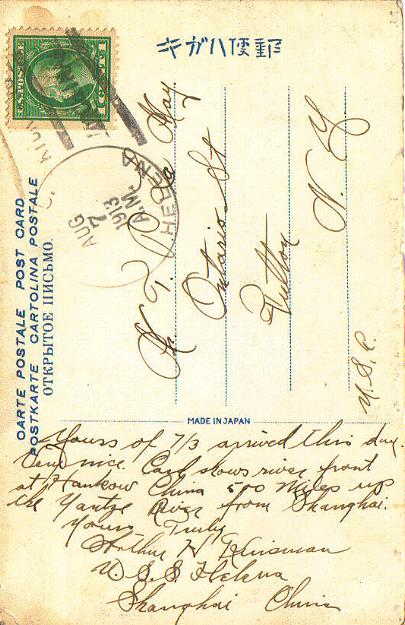 郵便ハガキ
CARTE POSTALE POST CARD
POSTKARTE CARTOLINA POSTALE
ОТКРЫТОЕ ПИСЬМО.
U.S. POSTAGE
HELENA
AUG
7
A.M.
1913
Ontario St
Fulton
N. Y
U. S. A.
MADE IN JAPAN
Yours of 7/3 arrived this day.
Very nice. Card shows river front
at Hankow China 500 miles up
the Yantze River from Shanghai.
Yours Truly
Arthur H Kinsman
U. S. S Helena
Shanghai China